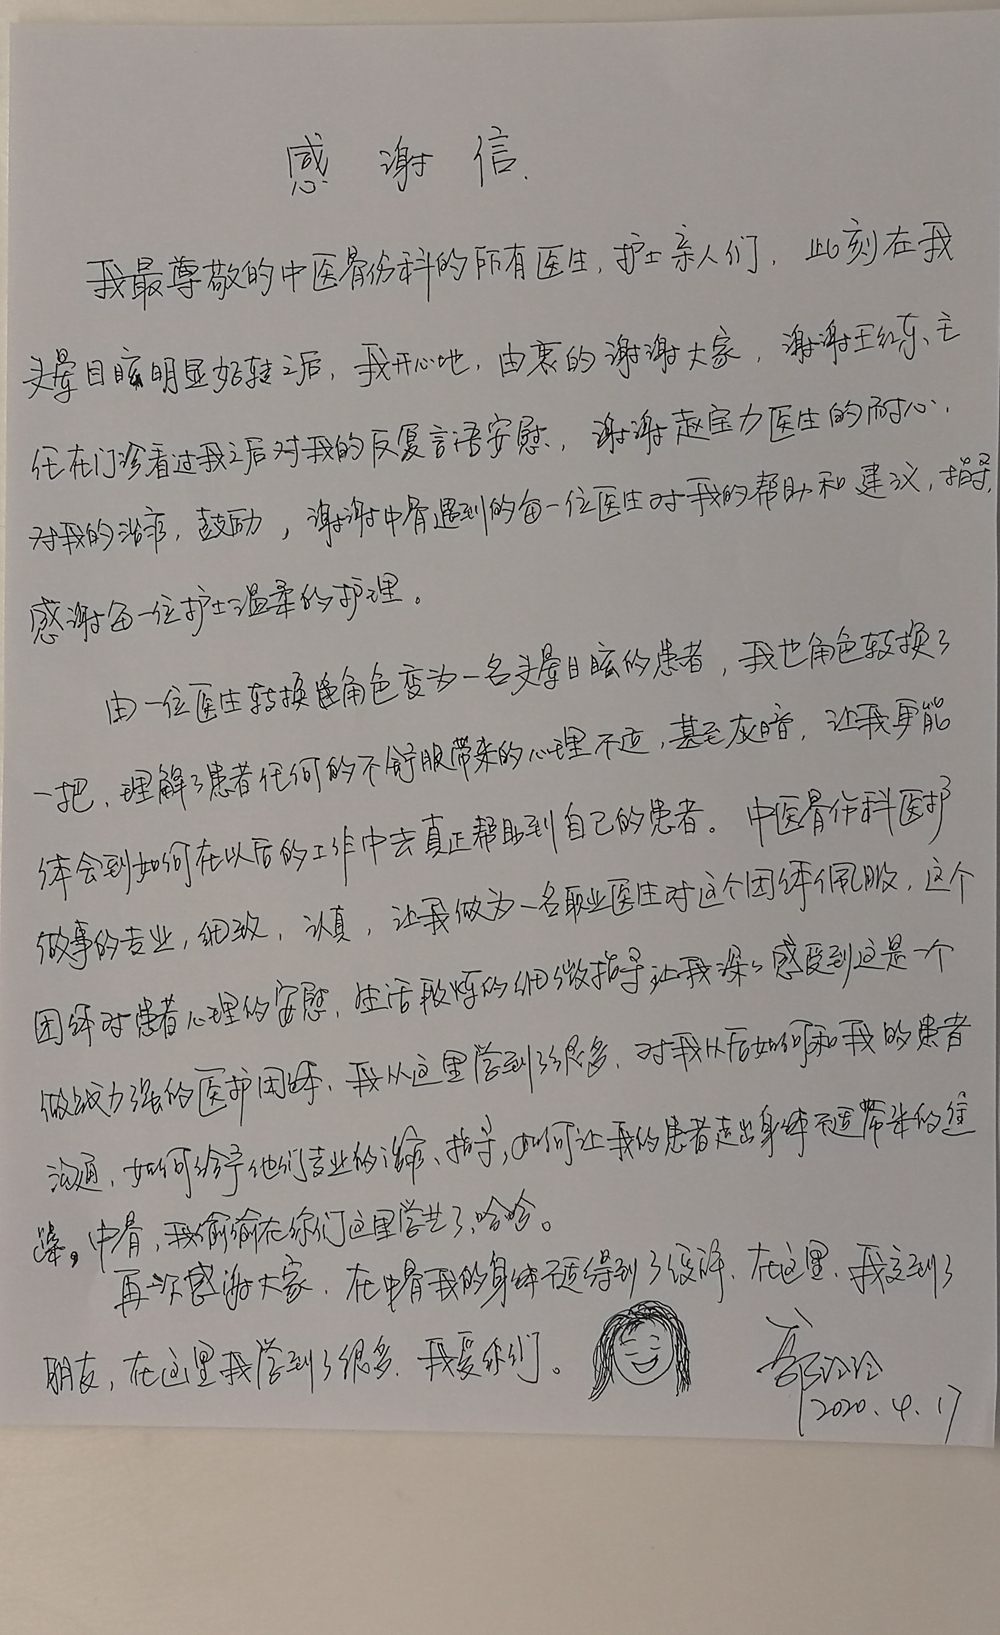 感谢信.
我最尊敬的中医骨伤科的所有医生,护士亲人们,此刻在我
头晕目眩明显好转之后,我开心地,由衷的谢谢大家,谢谢王红东主
任在门诊看过我之后对我的反复言语安慰,谢谢赵宝力医生的耐心,
对我的治疗,鼓励,谢谢中骨遇到的每一位医生对我的帮助和建议,指导,
感谢每一位护士温柔的护理。
由一位医生转换角色变为一名头晕目眩的患者,我也角色转换了
一把,理解了患者任何的不舒服带来的心理不适,甚至灰暗,让我更能
体会到如何在以后的工作中去真正帮助到自己的患者。中医骨伤科医护
做事的专业,细致,认真,让我做为一名职业医生对这个团体佩服,这个
团体对患者心理的安慰,生活锻炼的细微指导让我深深感受到这是一个
战力强的医护团体,我从这里学到了很多,对我以后如何和我的患者
沟通,如何给予他们专业的治疗、指导,如何让我的患者走出身体不适带来的焦
躁,中骨,我偷偷在你们这里学艺了,哈哈。
再次感谢大家,在中骨我的身体不适得到了缓解,在这里,我交到了
朋友,在这里我学到了很多,我爱你们。
2020.4.17